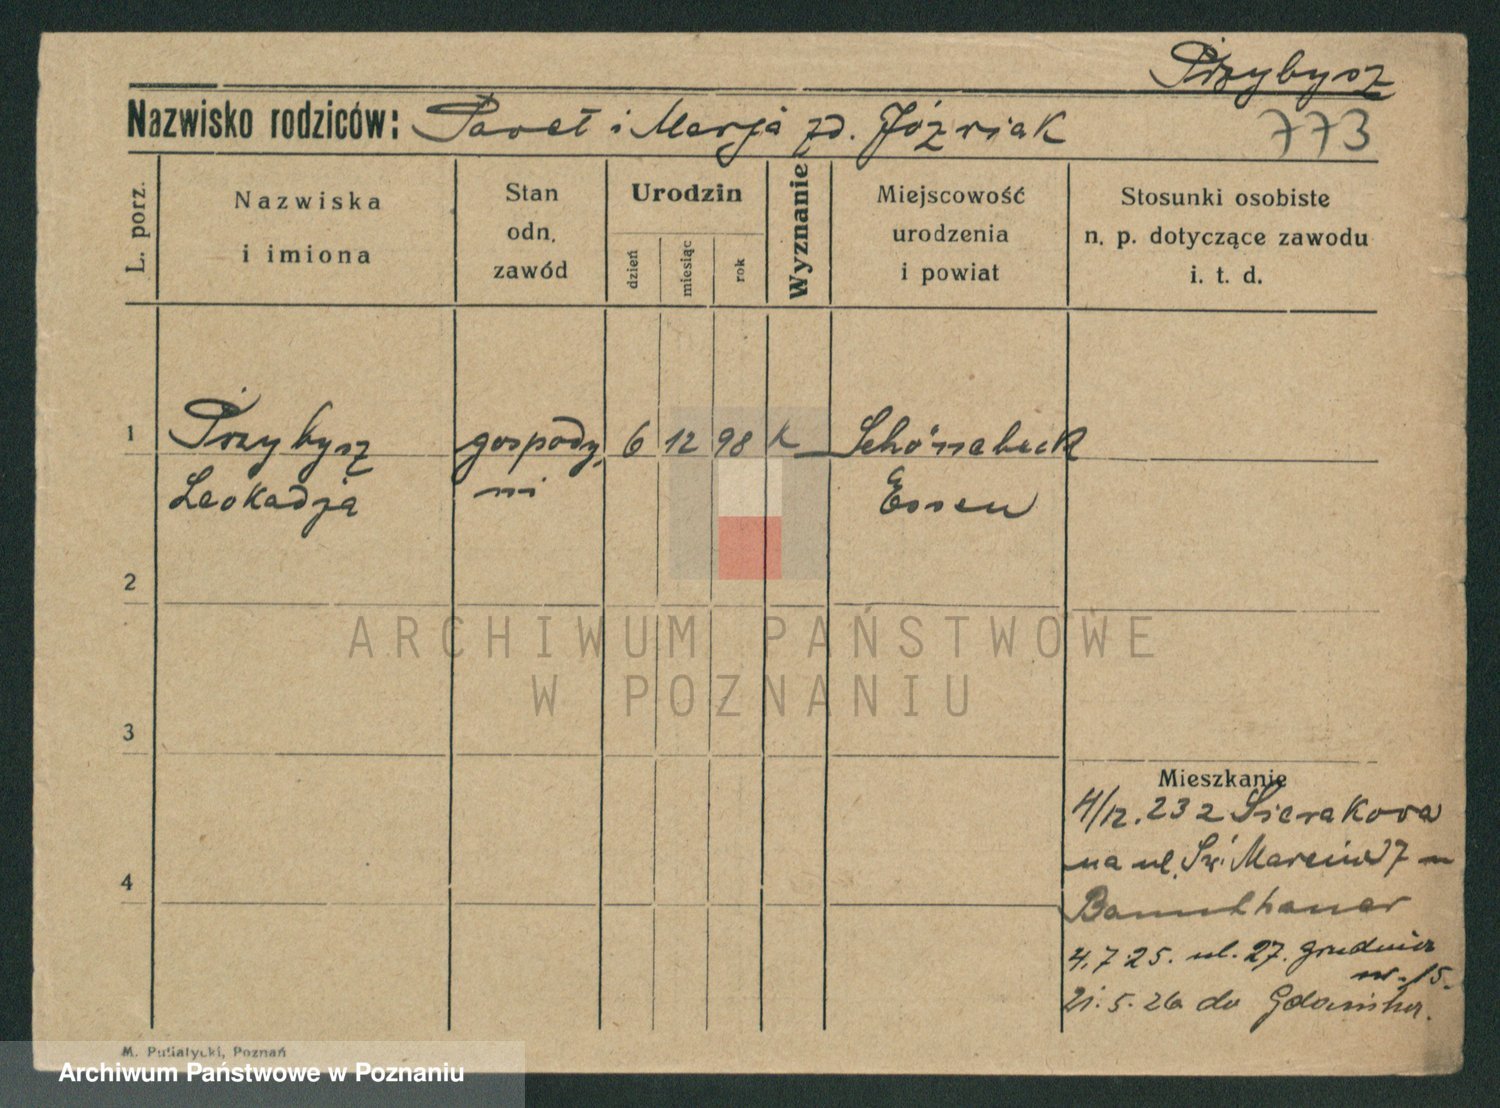 Przybysz
Nazwisko rodziców: Paweł i Marja zd. Jóźwiak 773
L. porz.
Nazwiska
i imiona
Stan
odn.
zawód
Urodzin
dzień
miesiąc
rok
Wyznanie
Miejscowość
urodzenia
i powiat
Stosunki osobiste
n. p. dotyczące zawodu
i. t. d.
1 Przybysz gospody, 6 12 98 k Schönebeck
Leokadja ni Essen
2
ARCHIWUM PAŃSTWOWE
W POZNANIU
3
Mieszkanie
4/12. 23 z Sierakowa
na ul. Św. Marcin 37 u
4
4.7.25. ul. 27. grudnia
nr. 15.
21.5.26 do Gdańska.
M. Putiatycki, Poznań
Archiwum Państwowe w Poznaniu